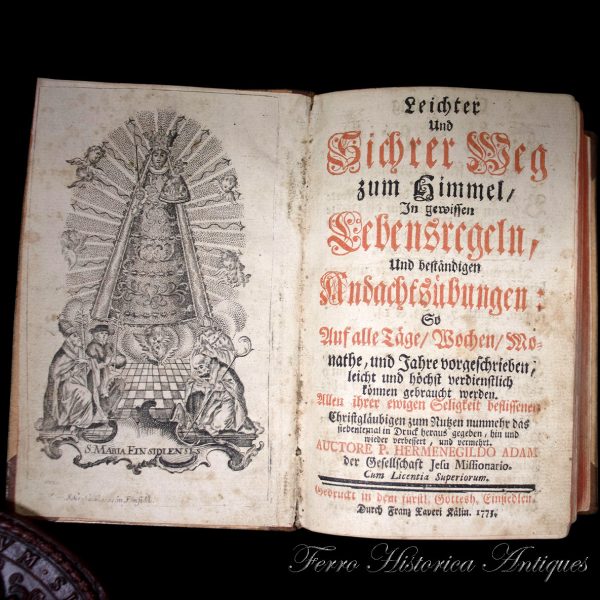 S. MARIA EINSIDLENSIS.
Leichter
Und
Sichrer Weg
zum Himmel/
In gewissen
Lebensregeln,
Und beständigen
Andachtsübungen:
So
Auf alle Täge/ Wochen/ Mo-
nathe, und Jahre vorgeschrieben,
leicht und höchst verdienstlich
können gebraucht werden.
Allen ihrer ewigen Seligkeit beflissenen
Christgläubigen zum Nutzen nunmehr das
siebentemal in Druck heraus gegeben, hin und
wieder verbessert, und vermehrt.
AUCTORE P. HERMENEGILDO ADAM
der Gesellschaft Jesu Missionario.
Cum Licentia Superiorum.
Gedruckt in dem fürstl. Gottesh. Einsidlen.
Durch Franz Xaveri Kälin. 1775.
Ferro Historica Antiques